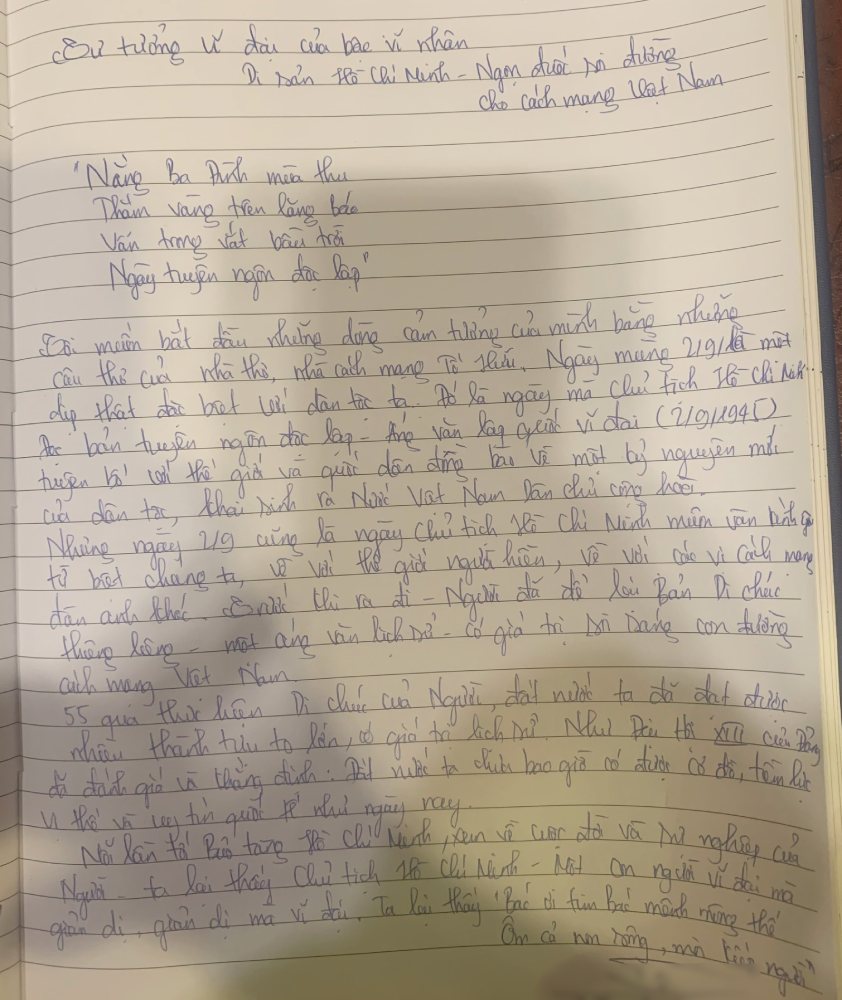 Sự tưởng vĩ đại của bậc vĩ nhân
Di sản Hồ Chí Minh - Ngọn đuốc soi đường
cho cách mạng Việt Nam
"Nắng Ba Đình mùa thu
Thắm vàng trên lăng bác
Vẫn trong vắt bầu trời
Ngày tuyên ngôn độc lập"
Tôi muốn bắt đầu những dòng cảm tưởng của mình bằng những
câu thơ của nhà thơ, nhà cách mạng Tố Hữu. Ngày mùng 2/9/ là một
dịp thật đặc biệt với dân tộc ta. Đó là ngày mà Chủ tịch Hồ Chí Minh
Đọc bản tuyên ngôn độc lập - Áng văn lập quốc vĩ đại (2/9/1945)
tuyên bố với thế giới và quốc dân đồng bào về một kỷ nguyên mới
của dân tộc, khai sinh ra Nước Việt Nam Dân chủ cộng hoà.
Nhưng ngày 2/9 cũng là ngày Chủ tịch Hồ Chí Minh muôn vàn kính yêu
từ biệt chúng ta, về với thế giới người hiền, về với các vị cách mạng
đàn anh khác. Trước khi ra đi - Người đã để lại Bản Di chúc
thiêng liêng - một áng văn lịch sử - có giá trị soi sáng con đường
cách mạng Việt Nam.
55 qua thực hiện Di chúc của Người, đất nước ta đã đạt được
nhiều thành tựu to lớn, có giá trị lịch sử. Như Đại Hội XIII của Đảng
đã đánh giá và khẳng định: Đất nước ta chưa bao giờ có được cơ đồ, tiềm lực
vị thế và uy tín quốc tế như ngày nay.
Mỗi lần tới Bảo tàng Hồ Chí Minh, xem về cuộc đời và sự nghiệp của
Người - ta lại thấy Chủ tịch Hồ Chí Minh - Một con người vĩ đại mà
giản dị, giản dị mà vĩ đại. Ta lại thấy "Bác ơi tim bác mênh mông thế
Ôm cả non sông, mọi kiếp người"